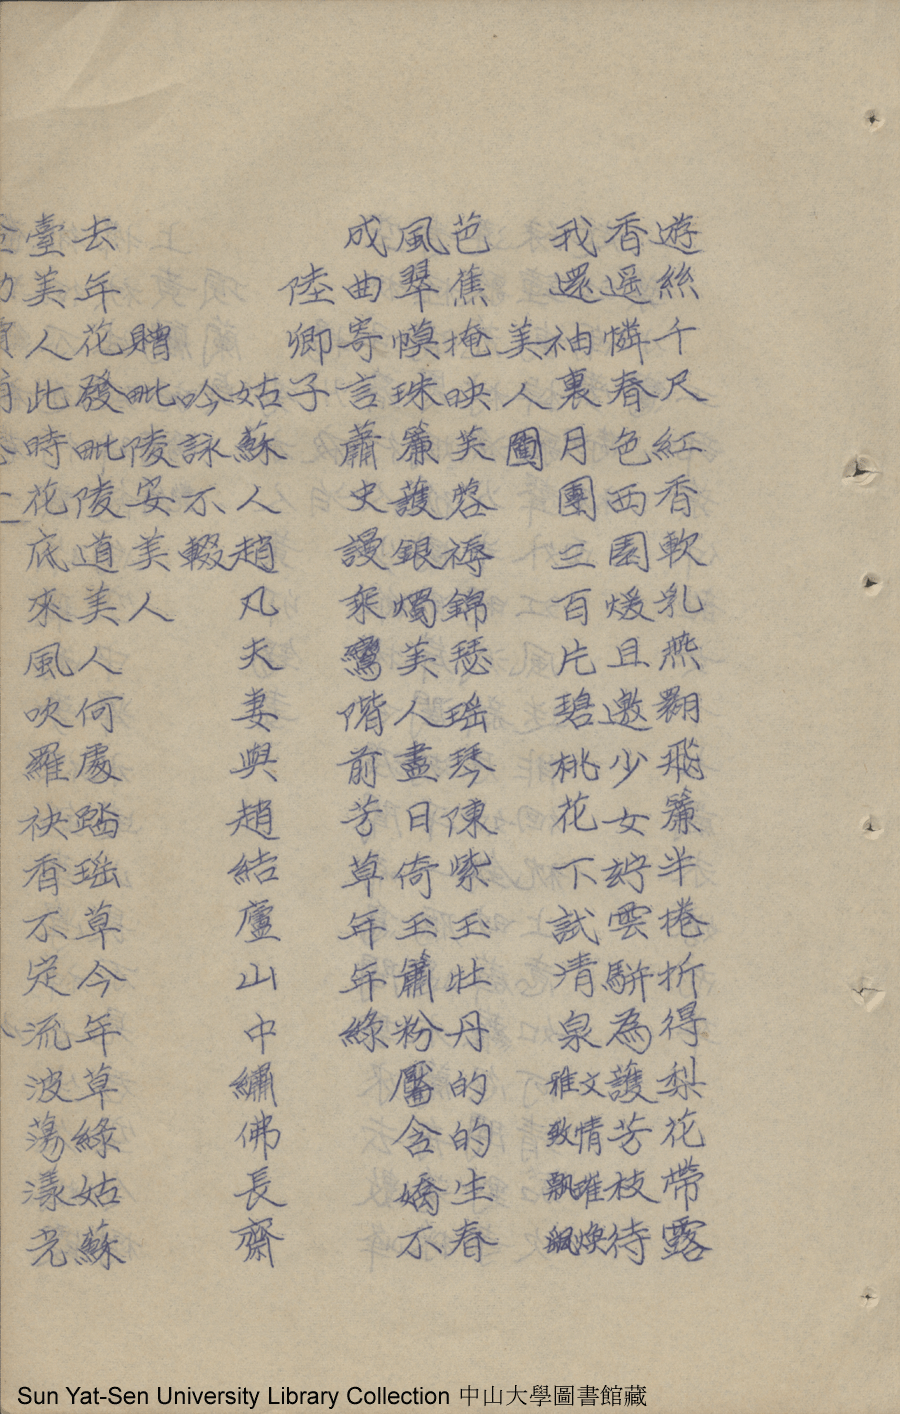 遊絲千尺紅香軟乳燕翾飛簾半捲折得梨花帶露
香遥憐春色西園煖且邀少女竚雲駢為護芳枝待
我還袖裏月團三百片碧桃花下試清泉文情璀煥雅致飄颻
美人圖
芭蕉掩映芙蓉褥錦瑟瑶琴陳紫玉牡丹的的生春
風翠幙珠簾護銀燭美人盡日倚玉簫粉靨含嬌不
成曲寄言蕭史謾乘鸞階前芳草年年綠
陸卿子
姑蘇人趙凡夫妻與趙結廬山中繡佛長齋
吟詠不輟
贈毗陵安美人
去年花發毗陵道美人何處踏瑶草今年草綠姑蘇
臺美人此時花底來風吹羅袂香不定流波蕩漾光